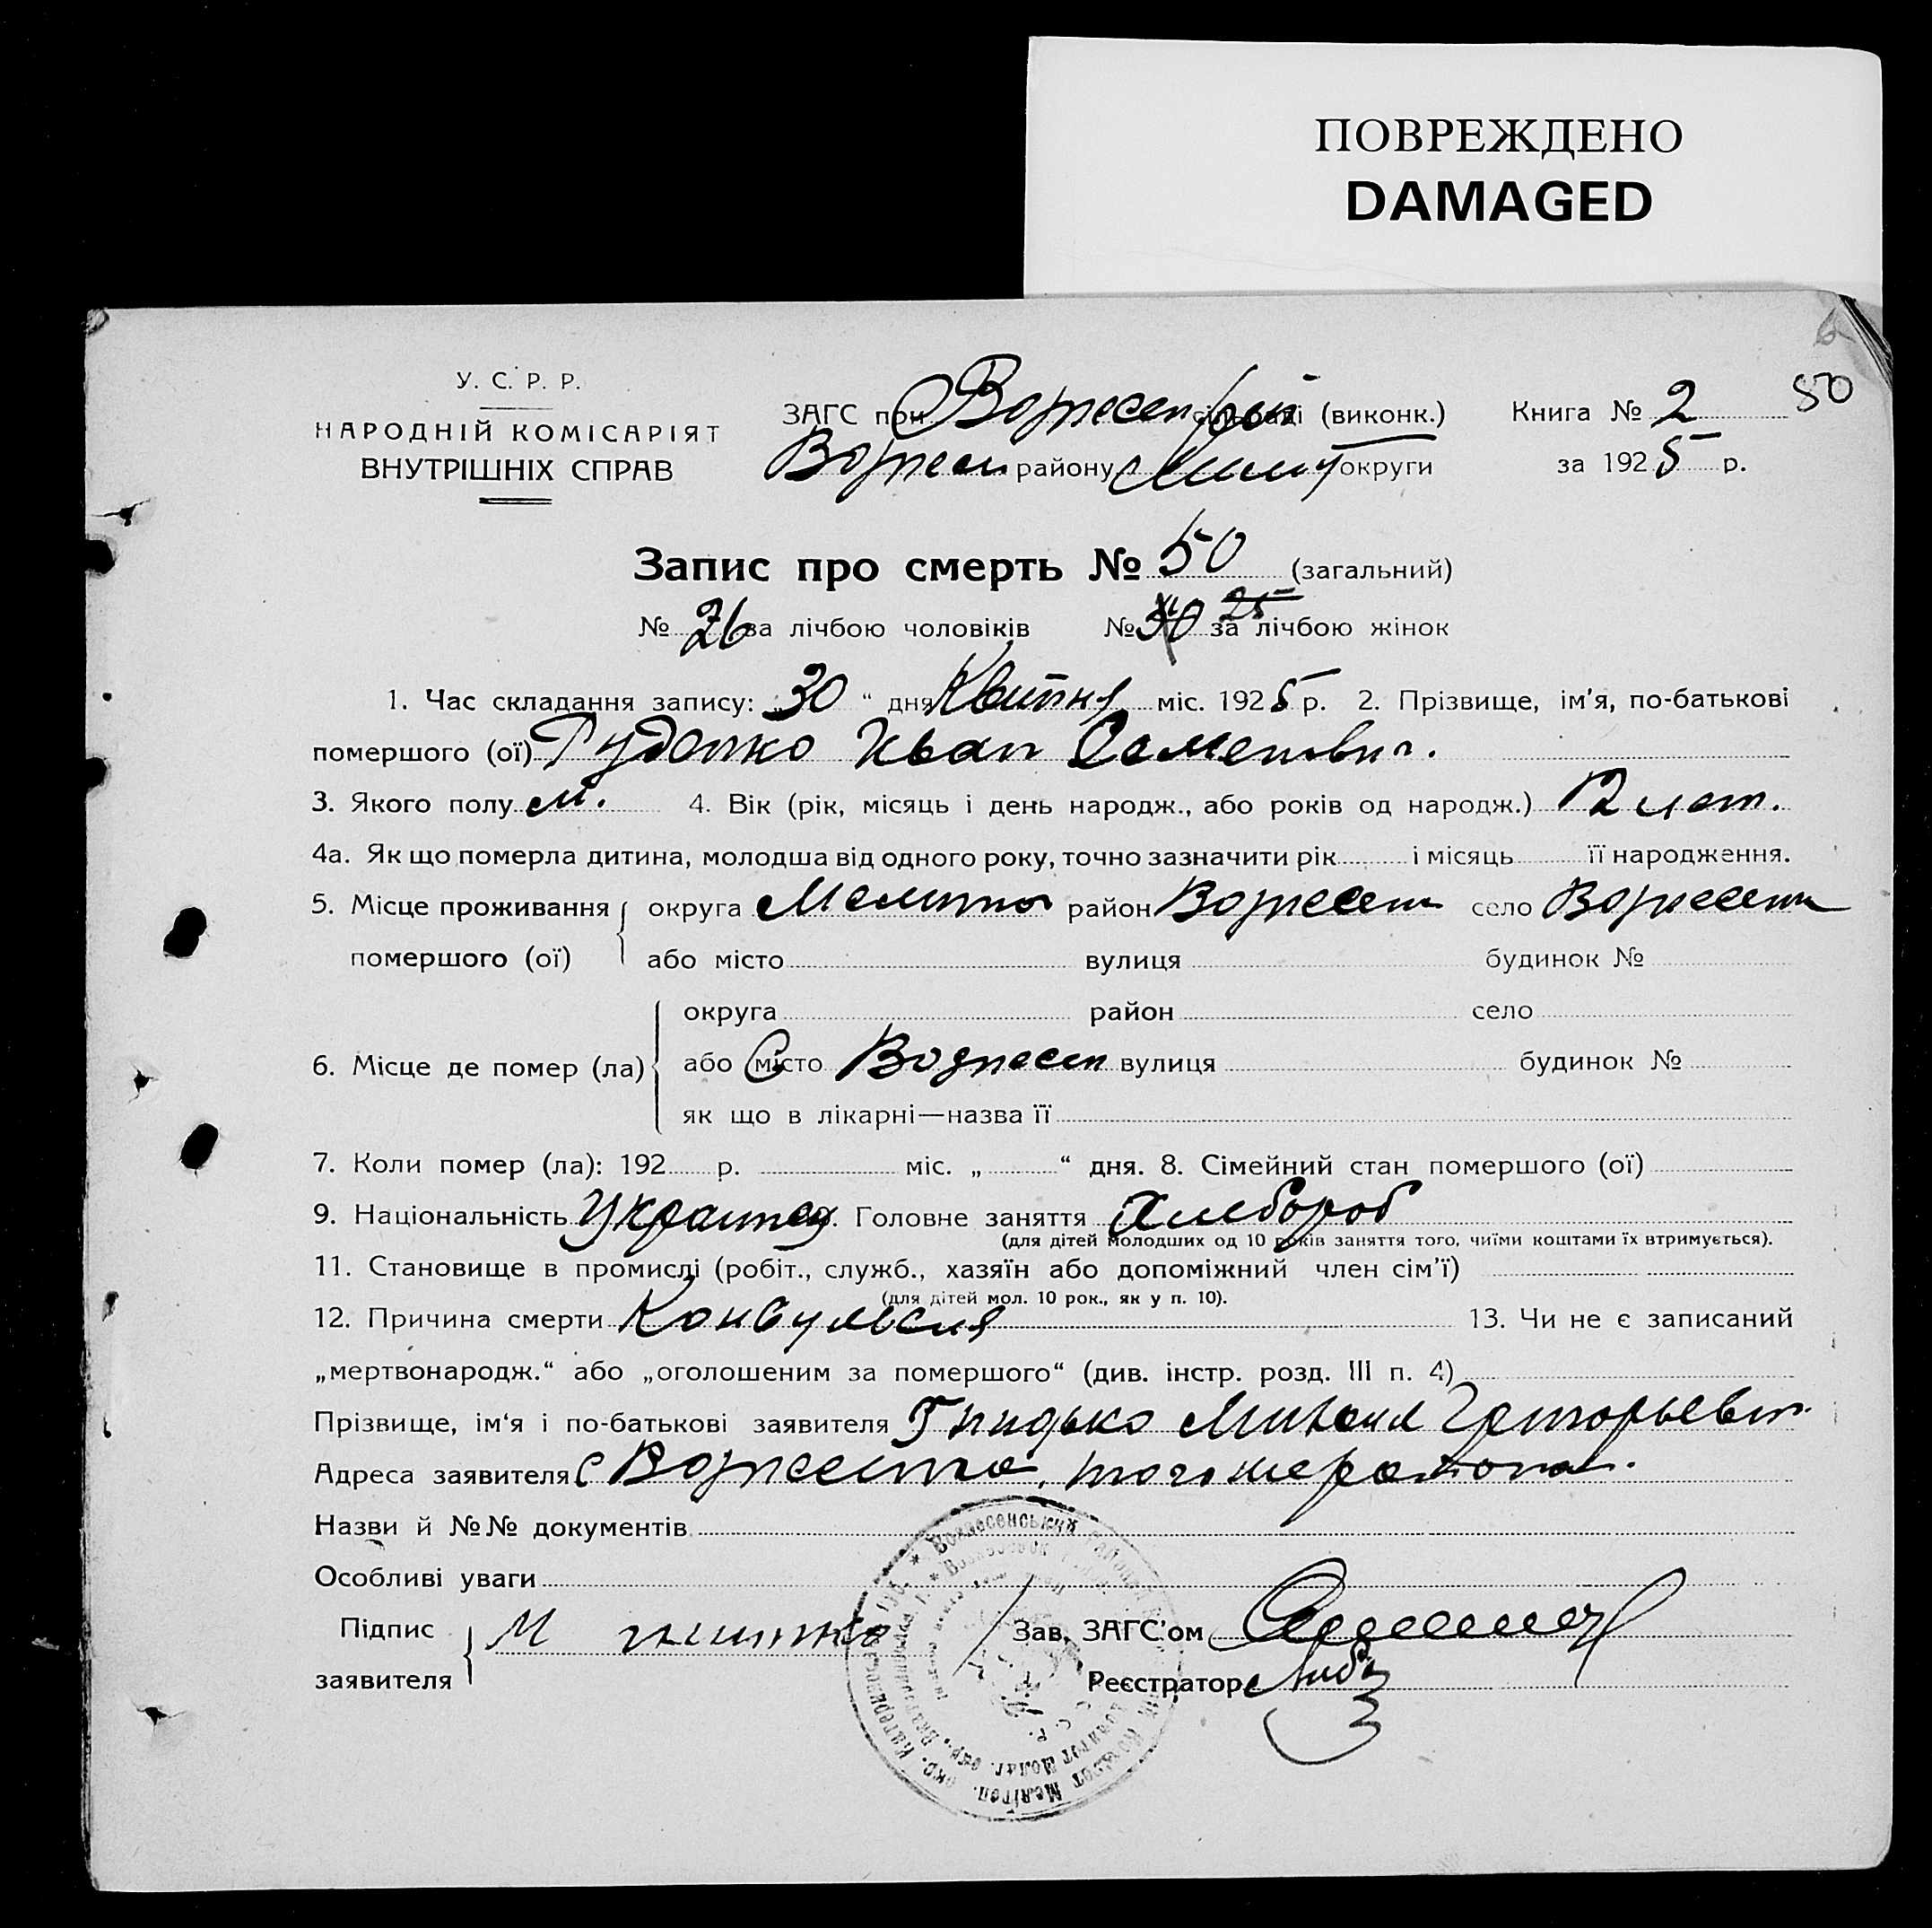 ПОВРЕЖДЕНО
DAMAGED
50
У. С. Р. Р.
НАРОДНІЙ КОМІСАРІЯТ
ВНУТРІШНІХ СПРАВ
ЗАГС при Вознесен сільраді (виконк.)
Вознесен району Мелит округи
Книга № 2
за 1925 р.
Запис про смерть № 50 (загальний)
№ 26 за лічбою чоловіків № 25 за лічбою жінок
1. Час складання запису: „30“ дня Квітня міс. 1925 р. 2. Прізвище, ім'я, по-батькові
помершого (ої) Иван Семенович.
3. Якого полу м. 4. Вік (рік, місяць і день народж., або років од народж.) 12 лет.
4а. Як що померла дитина, молодша від одного року, точно зазначити рік і місяць її народження.
5. Місце проживання помершого (ої) округа Мелитоп район Вознесен село Вознесен
або місто вулиця будинок №
6. Місце де помер (ла) округа район село
або місто Вознесен вулиця будинок №
як що в лікарні—назва її
7. Коли помер (ла): 192 р. міс. „ “ дня. 8. Сімейний стан помершого (ої)
9. Національність Украинец 10. Головне заняття Хлебороб
(для дітей молодших од 10 років заняття того, чиїми коштами їх втримується).
11. Становище в промислі (робіт., служб., хазяїн або допоміжний член сім'ї)
(для дітей мол. 10 рок., як у п. 10).
12. Причина смерти Конвульсия 13. Чи не є записаний
„мертвонародж.“ або „оголошеним за помершого“ (див. інстр. розд. III п. 4)
Прізвище, ім'я і по-батькові заявителя Михаил Григорьевич
Адреса заявителя с Вознесенка, того же района.
Назви й №№ документів
Особливі уваги
Підпис заявителя М
Зав. ЗАГС'ом
Реєстратор